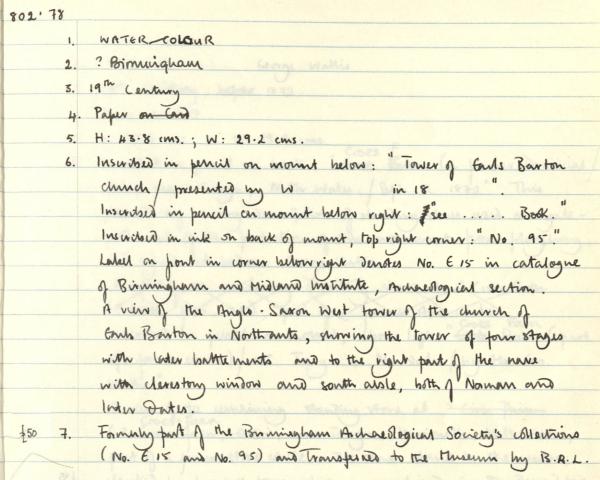 802'78
1. WATER-COLOUR
2. ? Birmingham
3. 19th Century
4. Paper on Card
5. H: 43.8 cms.; W: 29.2 cms.
6. Inscribed in pencil on mount below: "Tower of Earls Barton
church / presented by W in 18 ".
Inscribed in pencil on mount below right: "see ..... Book."
Inscribed in ink on back of mount, top right corner: "No. 95."
Label on front in corner below right denotes No. E15 in catalogue
of Birmingham and Midland Institute, Archaeological section.
A view of the Anglo-Saxon West tower of the church of
Earls Barton in Northants, showing the tower of four stages
with later battlements and to the right part of the nave
with clerestory window and south aisle, both of Norman and
later dates.
£50 7. Formerly part of the Birmingham Archaeological Society's collections
(No. E15 and No. 95) and Transferred to the Museum by B.R.L.